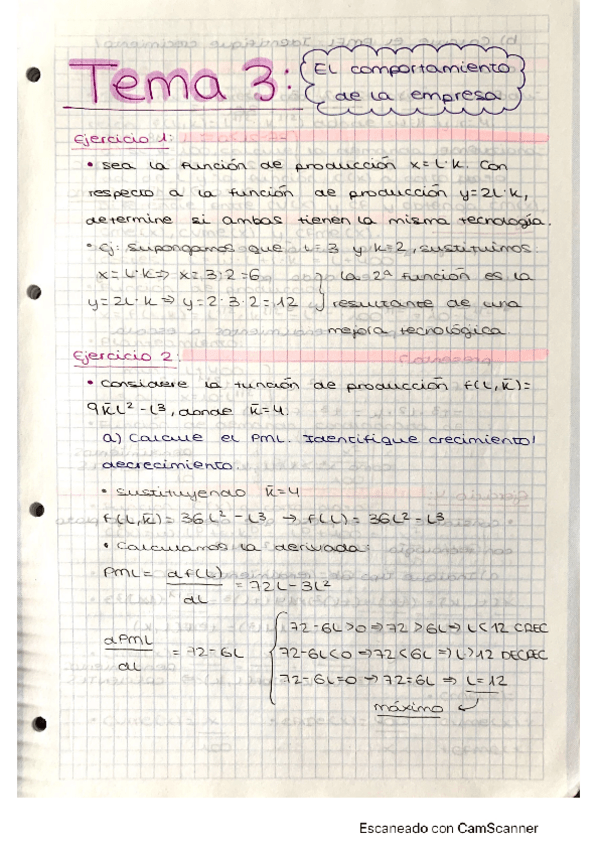 Tema 3:
El comportamiento
de la empresa
Ejercicio 1:
• sea la función de producción x=L·K. Con
respecto a la función de producción y=2L·K,
determine si ambas tienen la misma tecnología.
• Ej: supongamos que L=3 y K=2, sustituimos:
x=L·K⇒ x=3·2=6 } la 2ª función es la
y=2L·K ⇒ y=2·3·2=12 } resultante de una
mejora tecnológica.
Ejercicio 2:
• considere la función de producción f(L,K̄)=
9K̄L²-L³, donde K̄=4.
a) Calcule el PML. Identifique crecimiento/
decrecimiento.
• Sustituyendo K̄=4
f(L,K̄)=36L²-L³ → f(L)=36L²-L³
• Calculamos la derivada:
PML= df(L)/dL = 72L-3L²
dPML/dL = 72-6L
72-6L>0 ⇒ 72>6L ⇒ L<12 CREC
72-6L<0 ⇒ 72<6L ⇒ L>12 DECREC
72-6L=0 ⇒ 72=6L ⇒ L=12
máximo ↵
Escaneado con CamScanner